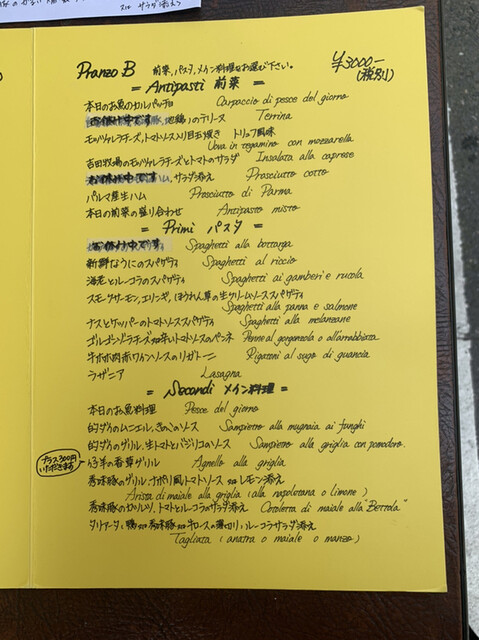 サラダ添え
Pranzo B 前菜、パスタ、メイン料理をお選び下さい。 ¥3000-
(税別)
= Antipasti 前菜 =
本日のお魚のカルパッチョ Carpaccio di pesce del giorno
お休み中です のテリーヌ Terrina
モッツァレラチーズ、トマトソース入り目玉焼き トリュフ風味
Uova in tegamino con mozzarella
吉田牧場のモッツァレラチーズとトマトのサラダ Insalata alla caprese
お休み中です ハム、サラダ添え Prosciutto cotto
パルマ産生ハム Prosciutto di Parma
本日の前菜の盛り合わせ Antipasto misto
= Primi パスタ =
お休み中です Spaghetti alla bottarga
新鮮なうにのスパゲティ Spaghetti al riccio
海老とルーコラのスパゲティ Spaghetti ai gamberi e rucola
スモークサーモン、エリンギ、ほうれん草の生クリームソーススパゲティ
Spaghetti alla panna e salmone
ナスとケッパーのトマトソーススパゲティ Spaghetti alla melanzane
ゴルゴンゾーラチーズ or 辛いトマトソースのペンネ Penne al gorgonzola o all'arrabbiata
牛ホホ肉赤ワインソースのリガトーニ Rigatoni al sugo di guancia
ラザニア Lasagna
= Secondi メイン料理 =
本日のお魚料理 Pesce del giorno
的ダイのムニエル、きのこのソース Sampietro alla mugnaia ai funghi
的ダイのグリル、生トマトとバジリコのソース Sampietro alla griglia con pomodoro.
プラス300円
いただきます
仔羊の香草グリル Agnello alla griglia
秀味豚のグリル ナポリ風トマトソース or レモン添え
Arista di maiale alla griglia (alla napoletana o limone)
秀味豚のカツレツ、トマトとルーコラのサラダ添え Cotoletta di maiale alla "Bettola"
タリアータ(鴨 or 秀味豚 or 牛ロースの薄切り)、ルーコラサラダ添え
Tagliata (anatra o maiale o manzo)